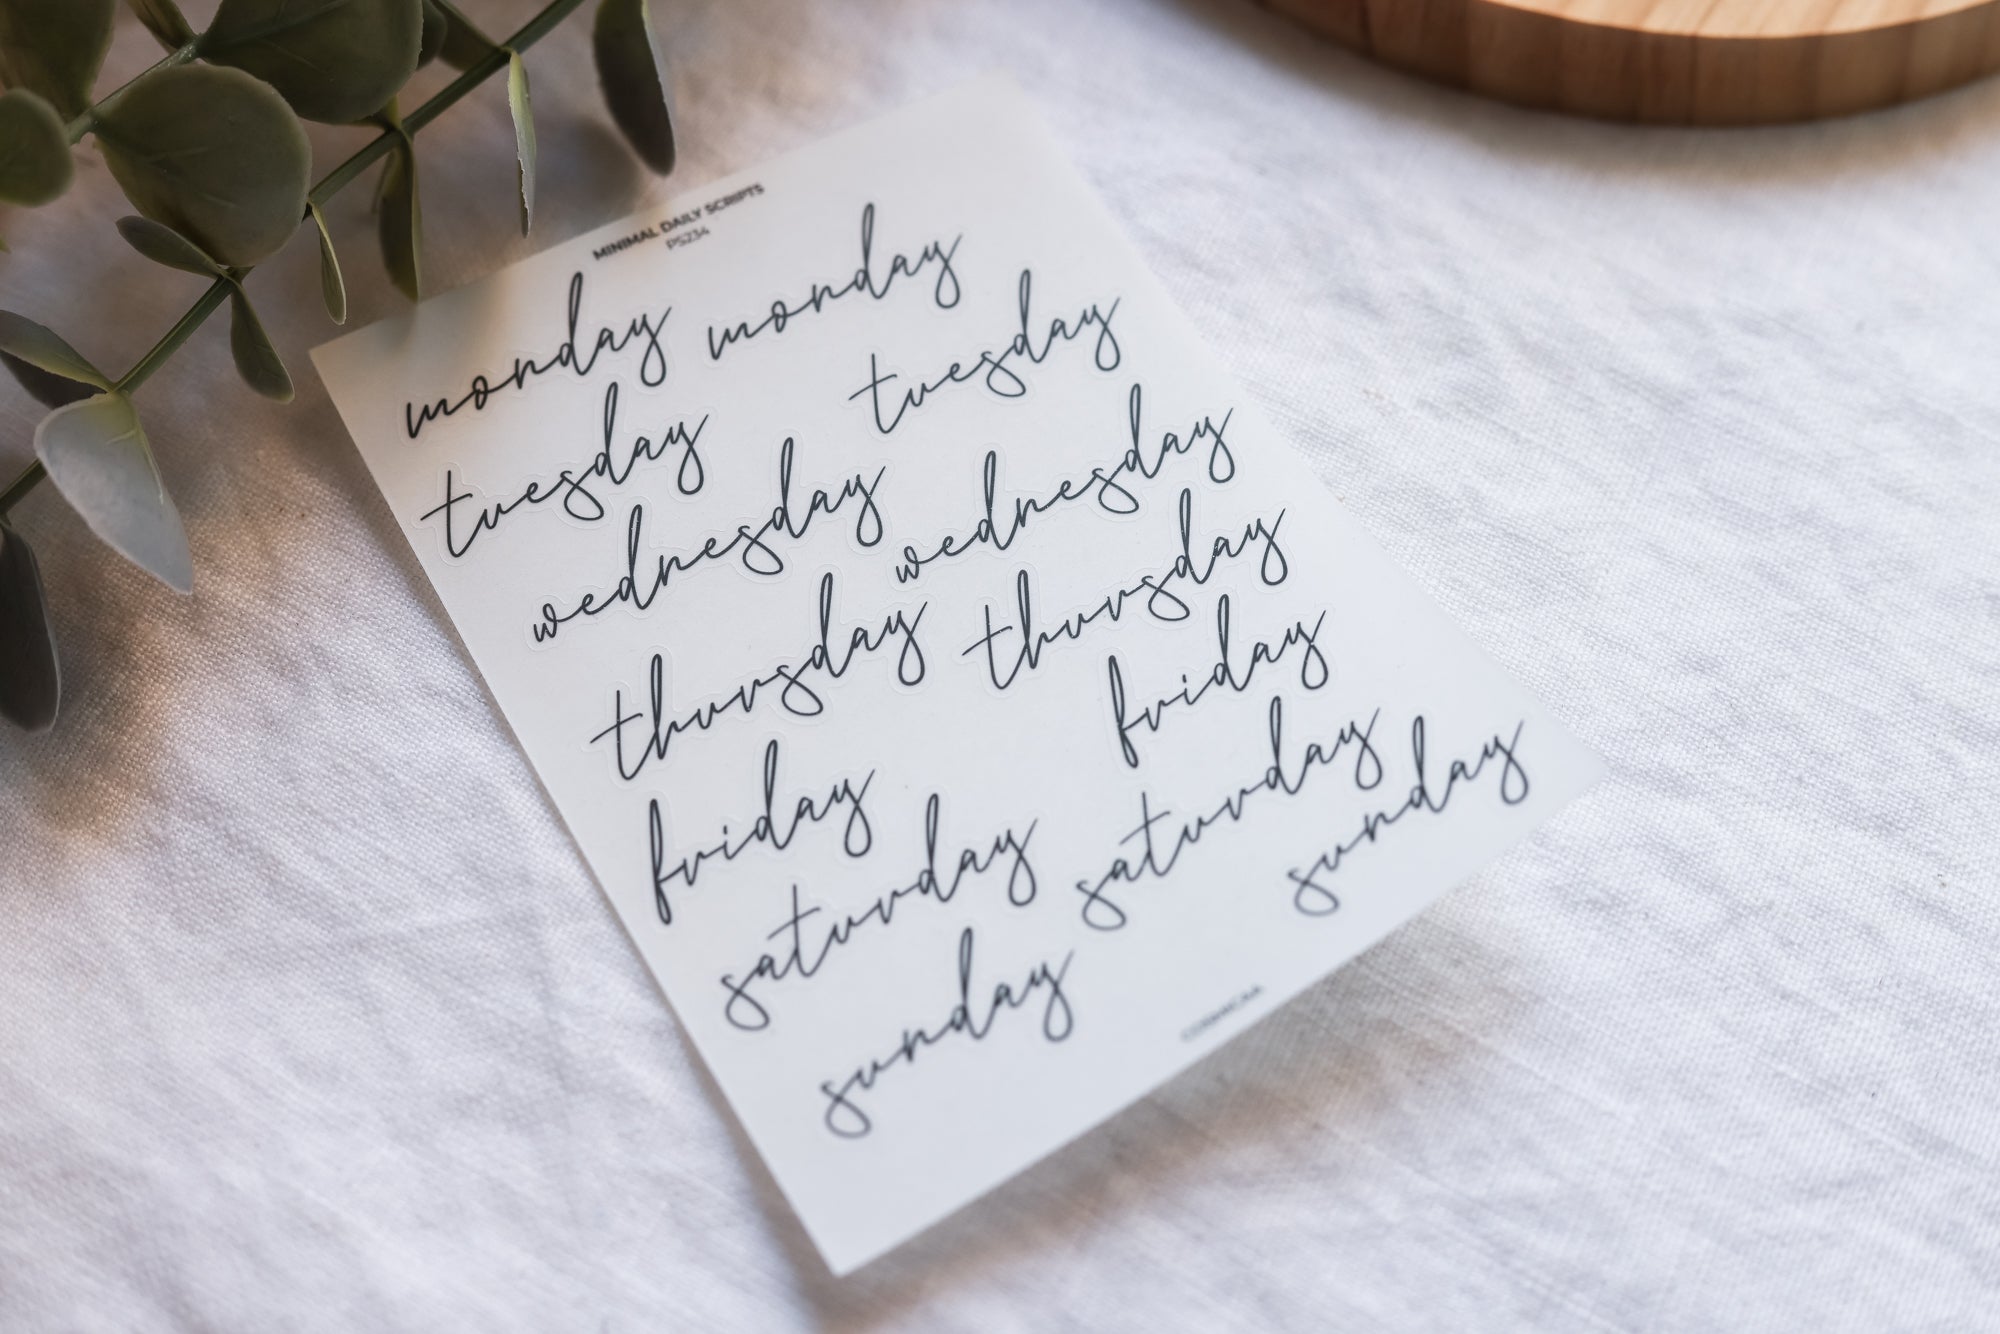 MINIMAL DAILY SCRIPTS
PS234
monday monday
tuesday tuesday
wednesday wednesday
thursday thursday
friday friday
saturday saturday
sunday sunday